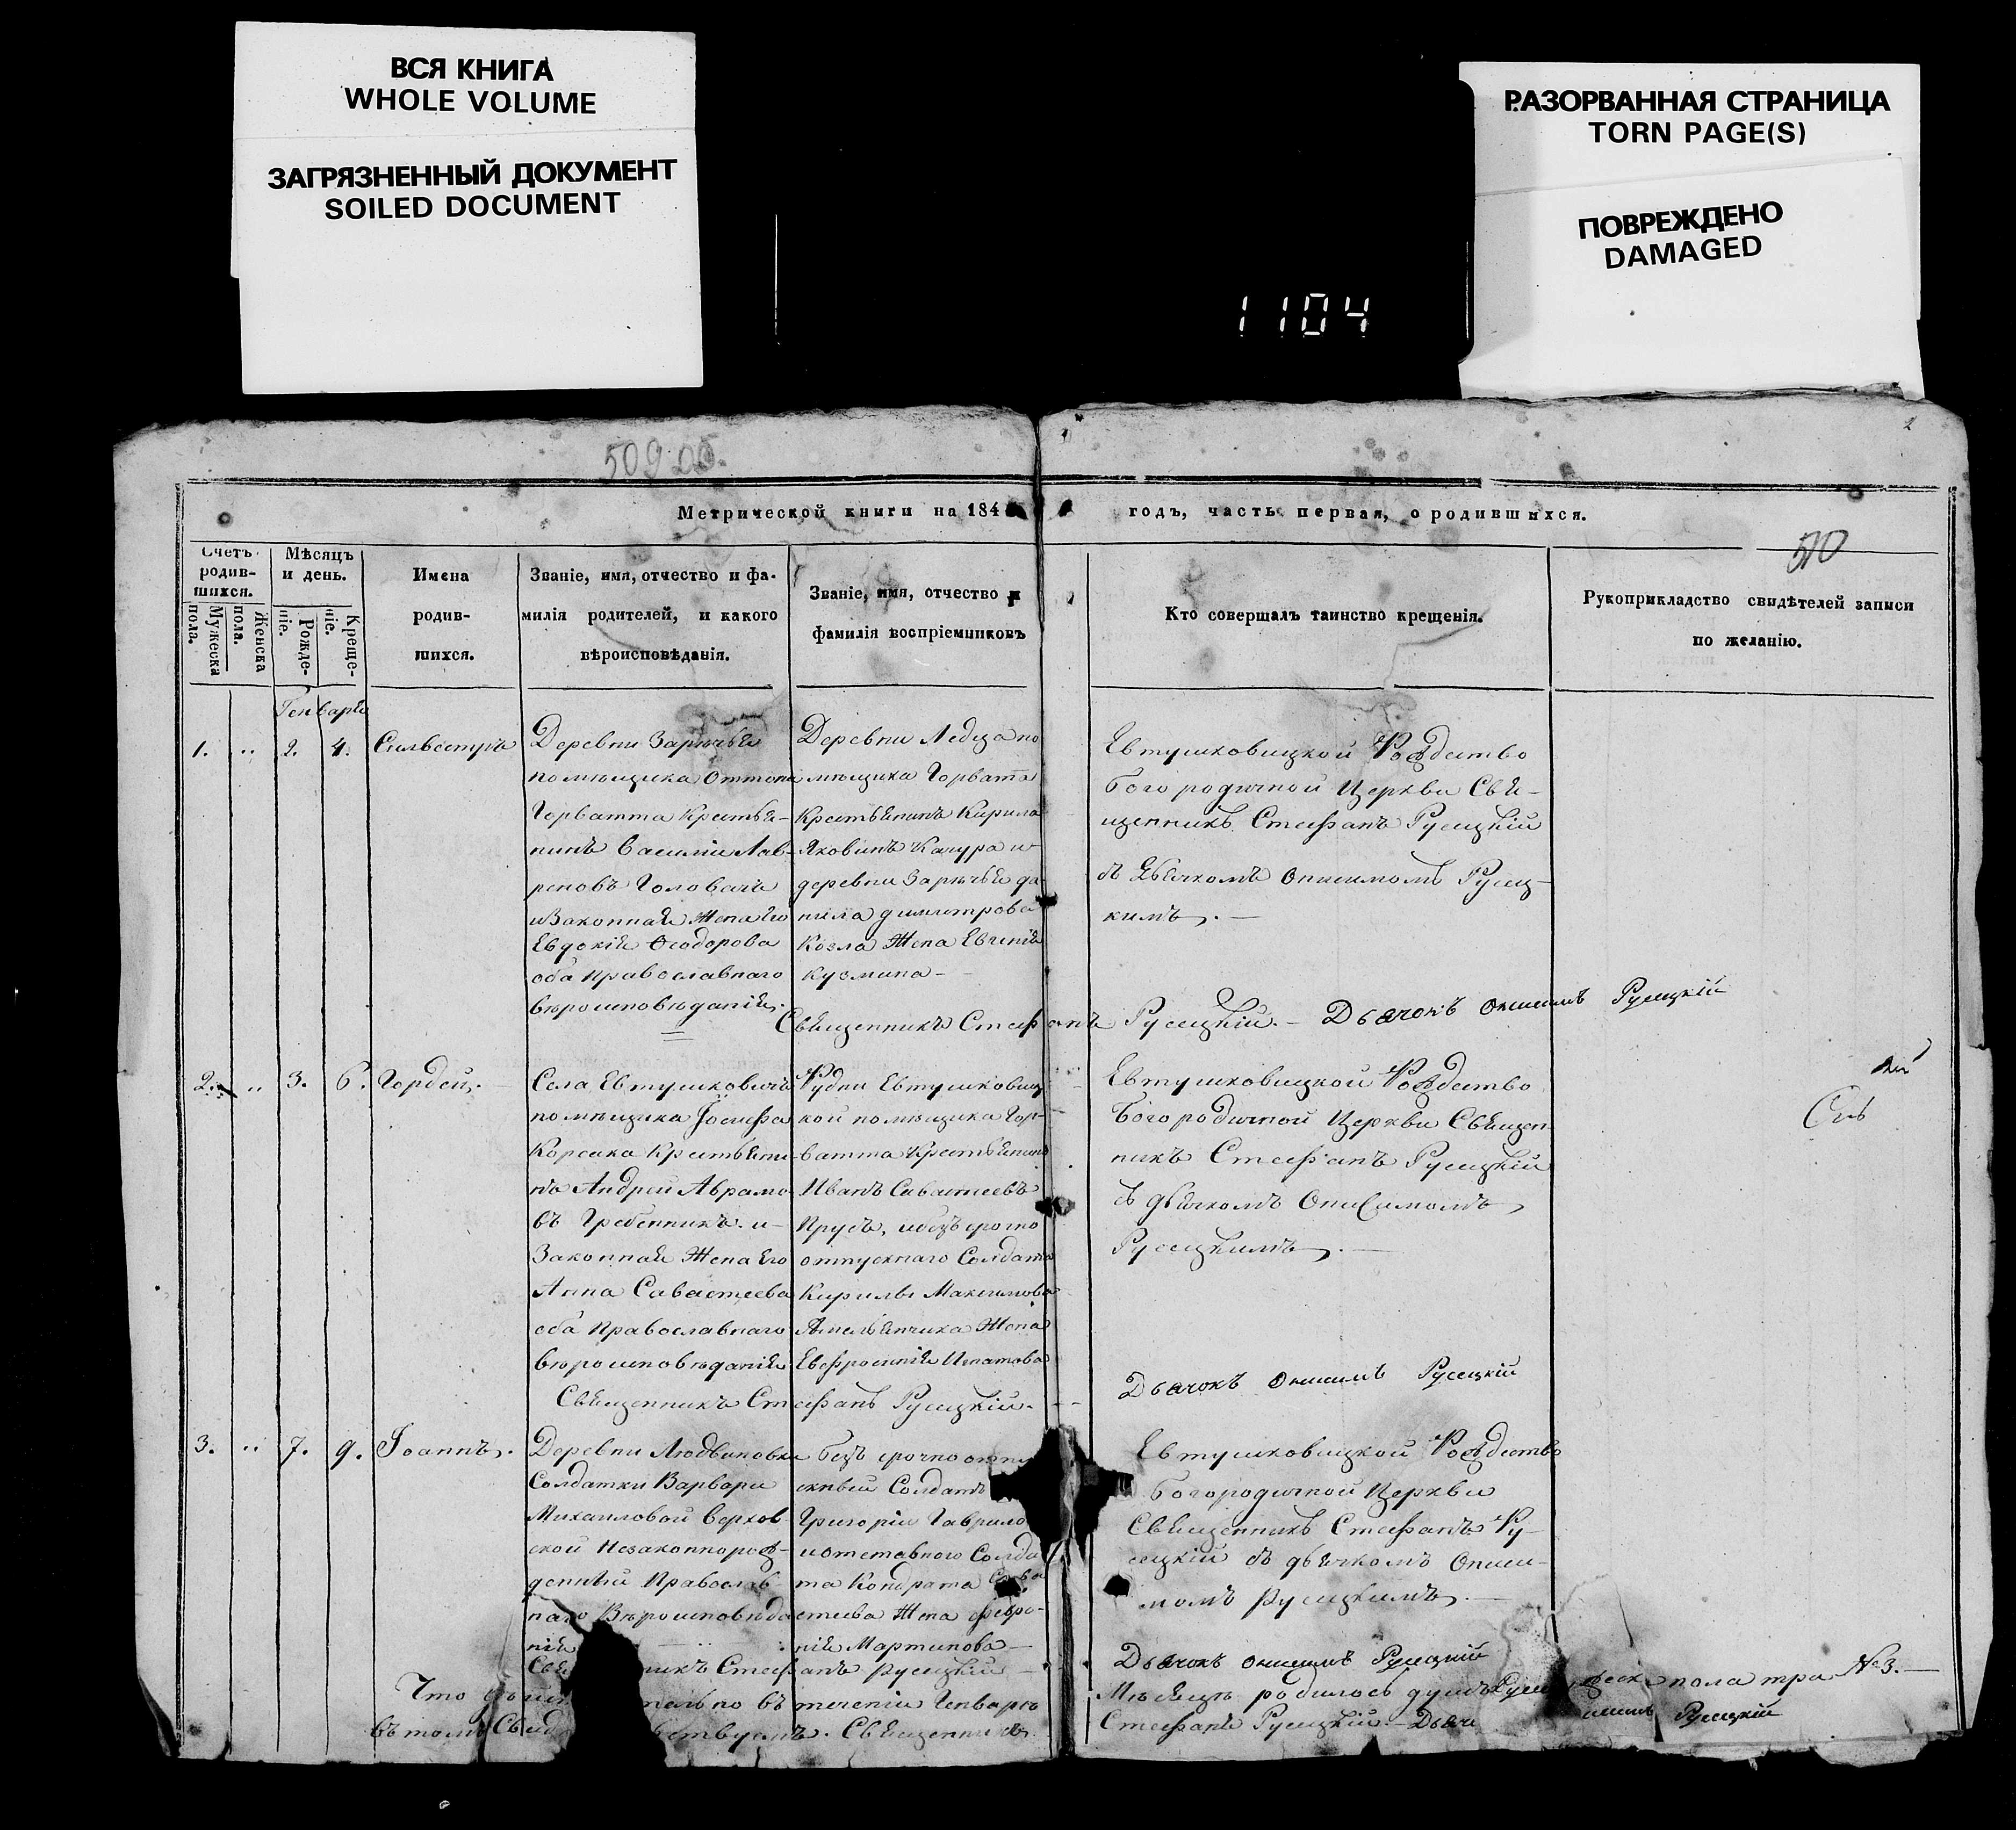 ВСЯ КНИГА
WHOLE VOLUME
ЗАГРЯЗНЕННЫЙ ДОКУМЕНТ
SOILED DOCUMENT
РАЗОРВАННАЯ СТРАНИЦА
TORN PAGE(S)
ПОВРЕЖДЕНО
DAMAGED
1104
2
509
Метрической книги на 184
годъ, часть первая, о родившихся.
510
Счетъ родив-
шихся.
Мужеска пола.
Женска пола.
Мѣсяцъ
и день.
Рожде-
ніе.
Креще-
ніе.
Имена
родив-
шихся.
Званіе, имя, отчество и фа-
милія родителей, и какого
вѣроисповѣданія.
Званіе, имя, отчество и
фамилія воспріемниковъ
Кто совершалъ таинство крещенія.
Рукоприкладство свидѣтелей записи
по желанію.
Генваря
1. .. 2. 4. Сильвестръ
Деревни Зарѣчья
помѣщика Оттона
Горватта Крестья-
нинъ Василій Лав-
реновъ Головачъ
и Законная Жена Его
Евдокія Ѳеодорова
оба Православнаго
вѣроисповѣданія.
Деревни Ледца по
мѣщика Горватта
Крестьянинъ Кирила
Яковинъ Качура и
деревни Зарѣчья да-
нила димитрова
Козла Жена Евгенія
Кузмина
Евтушковицкой Рождество
Богородичной Церкви Свя-
щенникъ Стефанъ Русецкій
съ Дьячкомъ Онисимомъ Русец-
кимъ.
Священникъ Стефанъ Русецкій. Дьячокъ Онисимъ Русецкій
2. .. 3. 6. Гордей.
Села Евтушковичъ
помѣщика Іосифа
Корсака Крестьяни-
нъ Андрей Аврамо-
въ Гребенникъ и
Законная Жена Его
Анна Савастеева
оба Православнаго
вѣроисповѣданія
Рудни Евтушковиц-
кой помѣщика Гор-
ватта Крестьянинъ
Иванъ Савастеевъ
Прусъ, и безсрочно
отпускнаго Солдата
Кирилы Максимова
Жена
Евфросинія Игнатова
Евтушковицкой Рождество
Богородичной Церкви Священ-
никъ Стефанъ Русецкій
съ дьячкомъ Онисимомъ
Русецкимъ.
Священникъ Стефанъ Русецкій.
Дьячокъ Онисимъ Русецкій
3. .. 7. 9. Іоаннъ.
Деревни Людвиновки
Солдатки Варвары
Михаиловой Верхов-
ской Незаконнорож-
денный Православ-
наго Вѣроисповѣда
нія
безъ срочно отпу
скный Солдатъ
Григорій Гаврило
и отставного Солда
та Кондрата Сава
стеева Жена февро-
нія Мартинова
Евтушковицкой Рождество
Богородичной Церкви
Священникъ Стефанъ Ру-
сецкій съ дьячкомъ Ониси-
момъ Русецкимъ.
Стефанъ Русецкій
Дьячокъ Онисимъ Русецкій
Что въ теченіи Генваря
Мѣсяцѣ родилось душъ пола три №3.
въ томъ Священникъ
Стефанъ Русецкій Русецкій